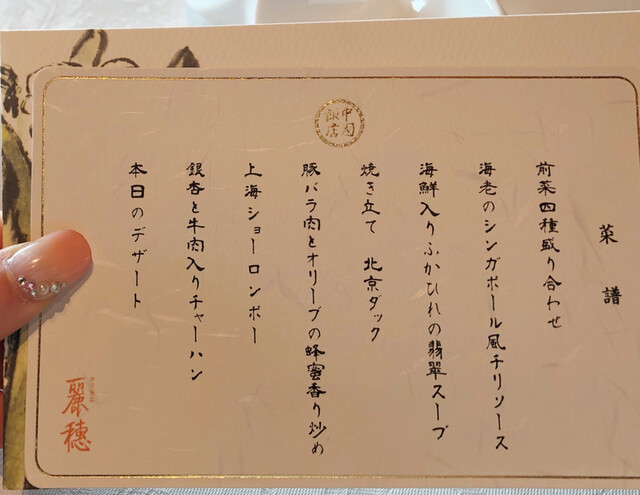 中国
飯店
菜譜
前菜四種盛り合わせ
海老のシンガポール風チリソース
海鮮入りふかひれの翡翠スープ
焼き立て 北京ダック
豚バラ肉とオリーブの蜂蜜香り炒め
上海ショーロンポー
銀杏と牛肉入りチャーハン
本日のデザート
麗穂